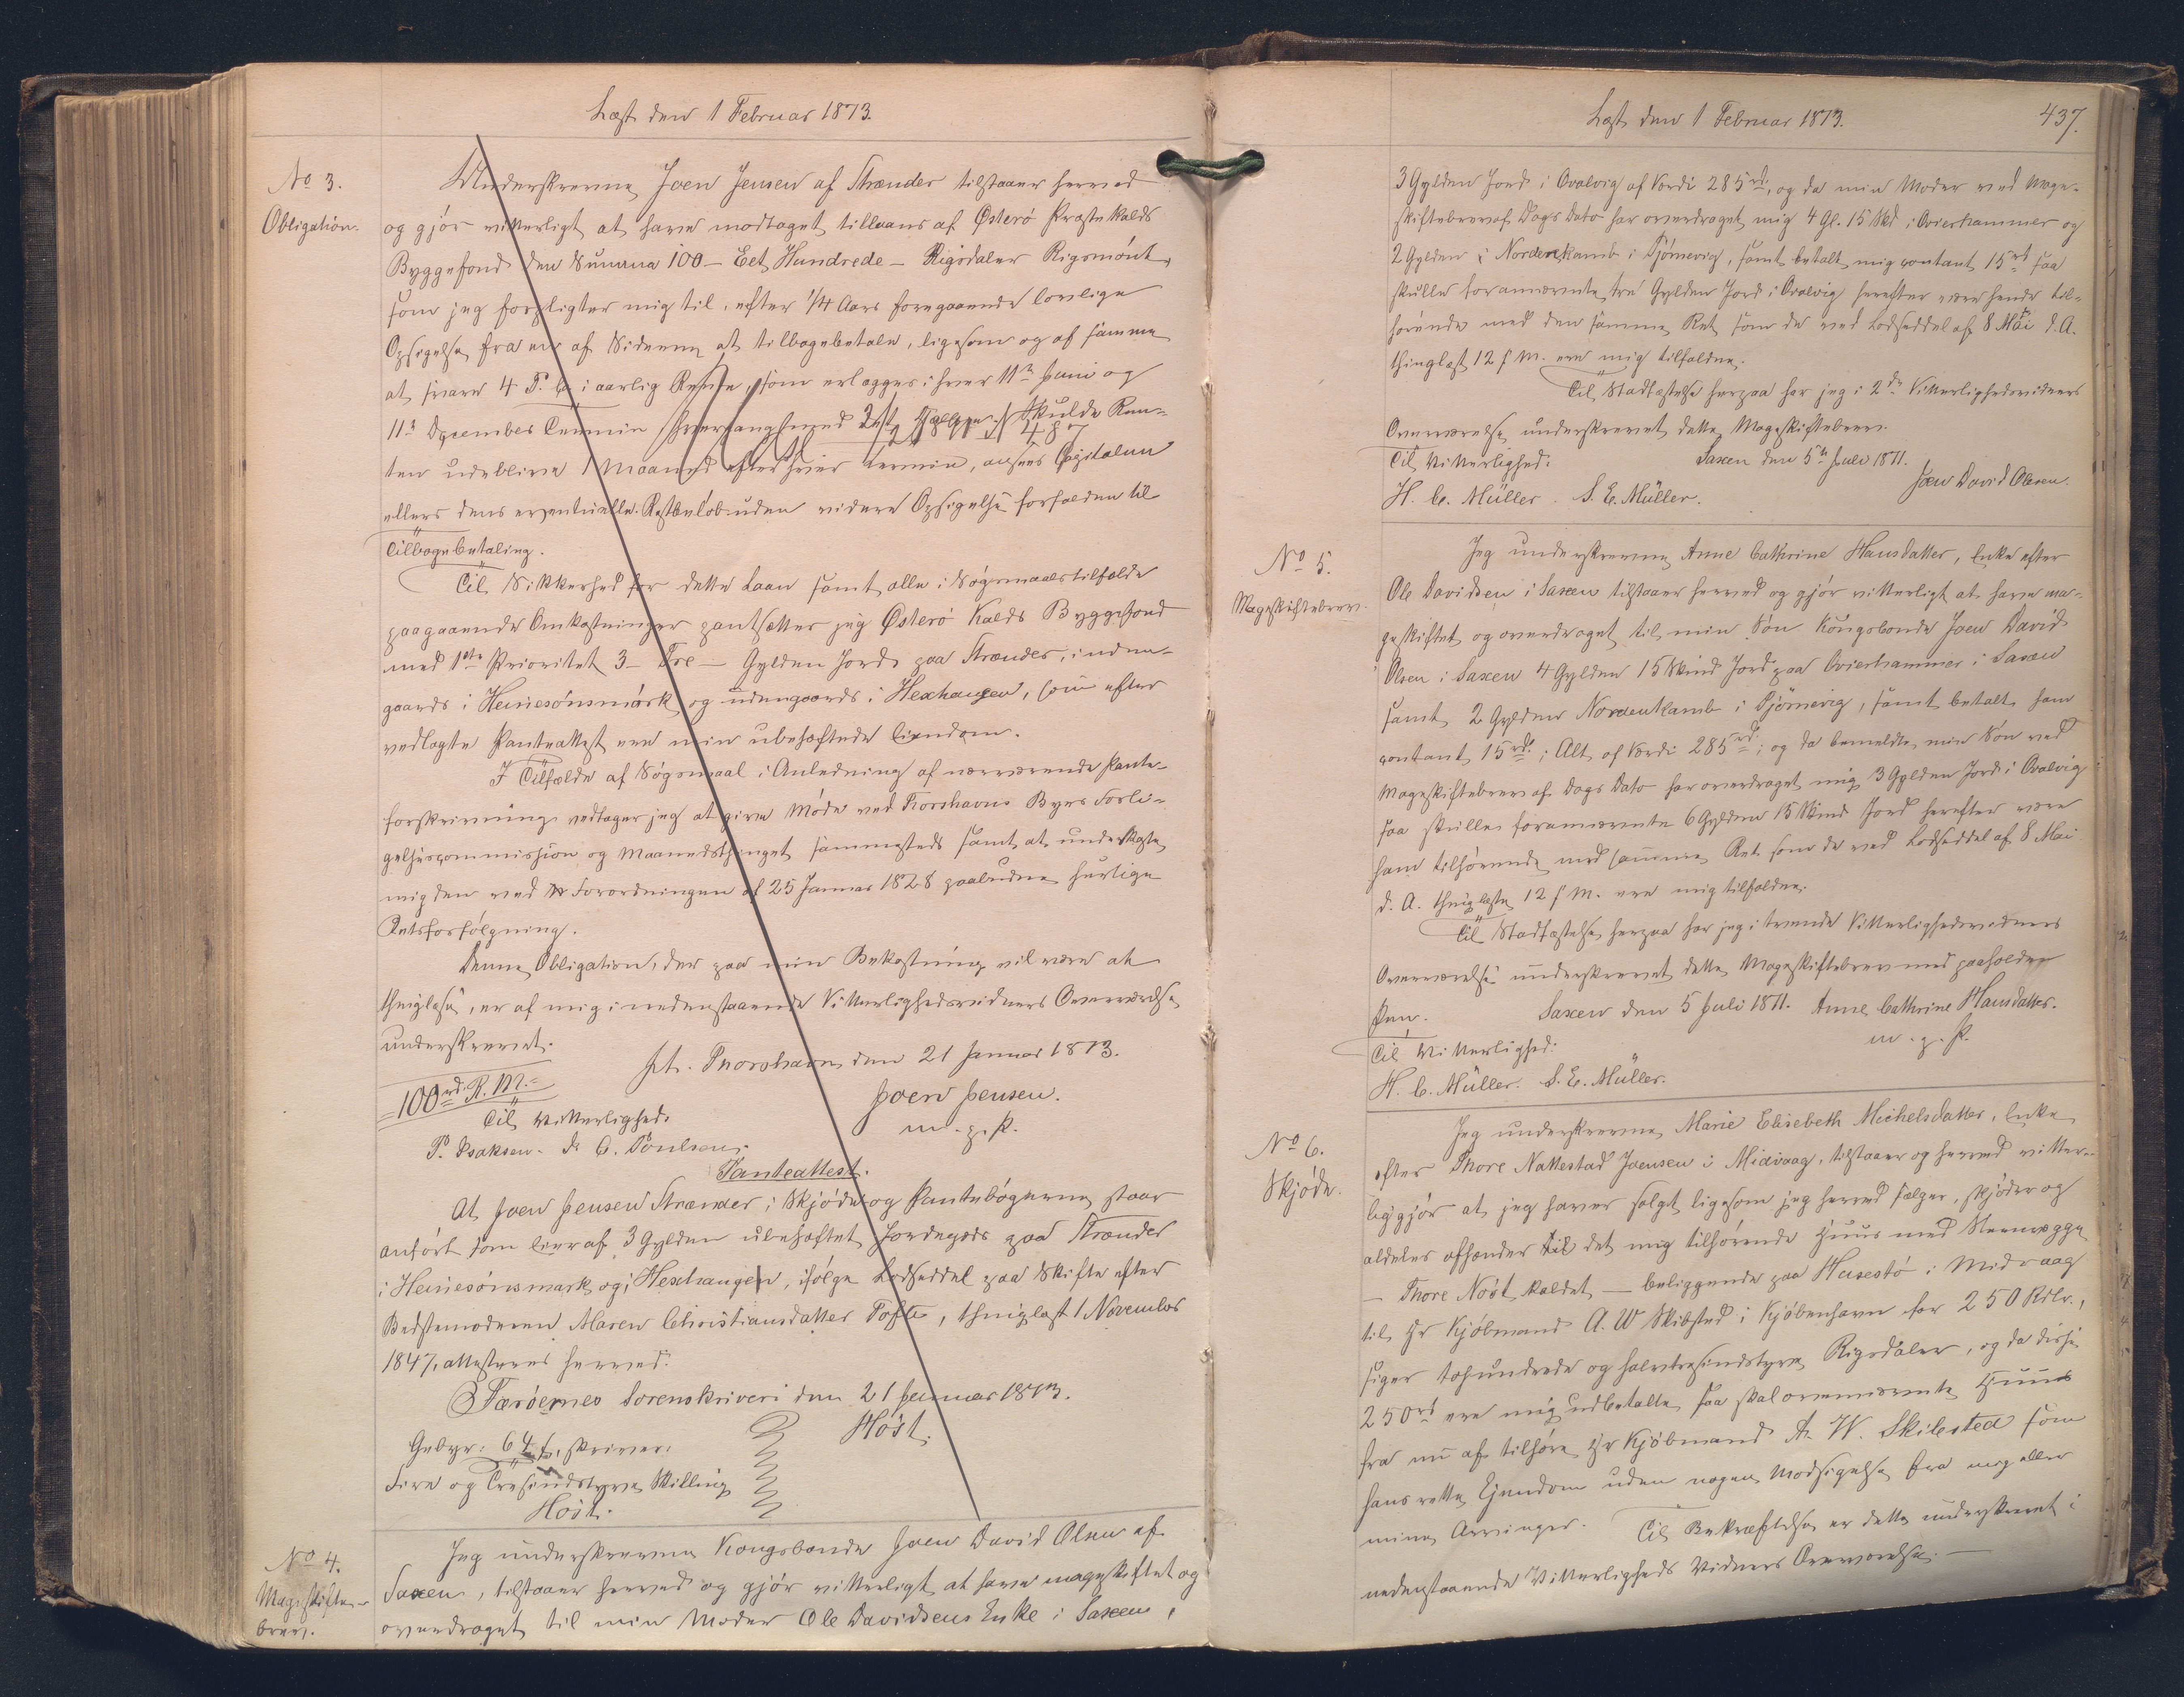 Læst den 1 Februar 1873.
No 3.
Obligation.
Underskrevne Joen Jensen af Strænder tilstaaer herved
og gjör vitterligt at have modtaget tillaans af Østerö Præstekalds
Byggefond den Summa 100 – Eet Hundrede – Rigsdaler Rigsmönt,
som jeg forpligter mig til, efter 1/4 Aars foregaaende lovlige
Opsigelse fra en af Siderne at tilbagebetale, ligesom og af samme
at svare 4 P. C. i aarlig Rente, som erlægges i hver 11te Juni og
11te December Termin hvergang med Skulde Ren-
ten udeblive 1 Maaned efter hver Termin, ansees Capitalen
ellers dens eventuelle Restbelöb uden videre Opsigelse forfalden til
Tilbagebetaling.
Til Sikkerhed for dette Laan samt alle i Sögsmaalstilfælde
paagaaende Omkostninger pantsætter jeg Østerö Kalds Byggefond
med 1ste Prioritet 3 – Tre – Gylden Jord paa Strænder, inden-
gaards i Heinesönsmörk og udengaards i Hexhaugen, som efter
vedlagte Panteattest ere min ubehæftede Eiendom.
I Tilfælde af Sögsmaal i Anledning af nærværende Pante-
forskrivning vedtager jeg at give Möde ved Thorshavns Byes Forli-
gelsescommission og Maanedsthinget sammesteds samt at underkaste
mig den ved Forordningen af 25 Januar 1828 paabudne hurtige
Retsforfölgning.
Denne Obligation, der paa min Bekostning vil være at
thinglæse, er af mig i nedenstaaende Vitterlighedsvidners Overværelse
underskrevet.
pt. Thorshavn den 21 Januar 1873.
100rd R. M.
Joen Jensen.
m. p. P.
Til Vitterlighed:
P. Isaksen. D. C. Poulsen.
Panteattest.
At Joen Jensen Strænder i Skjöde og Pantebögerne staar
anfört som Eier af 3 Gylden ubehæftet Jordegods paa Strænder
i Heinesönsmark og i Hexhaugen, ifölge Lodseddel paa Skifte efter
Bedstemoderen Maren Christiansdatter Tofte, thinglæst 1 November
1847, attesteres herved.
Færöernes Sorenskriveri den 21 Januar 1873.
Höst.
Gebyr: 64 f, skriver:
Fire og Tresindstyve Skilling
Höst.
No 4.
Mageskifte-
brev.
Jeg underskrevne Kongsbonde Joen David Olsen af
Saxen, tilstaaer herved og gjör vitterligt at have mageskiftet og
overdraget til min Moder Ole Davidsens Enke i Saxen,
Læst den 1 Februar 1873.
437.
3 Gylden Jord i Qvalvig af Værdi 285rd, og da min Moder ved Mage-
skiftebrev af Dags Dato har overdraget mig 4 Gl. 15 Skd i Ovierhammer og
2 Gylden i Nordenkamb i Tjörnevig, samt betalt mig contant 15rd saa
skulle forannævnte tre Gylden Jord i Qvalvig herefter være hende til-
hörende med den samme Ret som de ved Lodseddel af 8 Mai d. A.
thinglæst 12 s. M. ere mig tilfaldne.
Til Stadfæstelse herpaa har jeg i 2de Vitterlighedsvidners
Overværelse underskrevet dette Mageskiftebrev.
Saxen den 5te Juli 1871.
Til Vitterlighed:
Joen David Olsen.
H. C. Müller. S. E. Müller.
No 5.
Mageskiftebrev.
Jeg underskrevne Anne Cathrine Hansdatter, Enke efter
Ole Davidsen i Saxen tilstaaer herved og gjör vitterligt at have ma-
geskiftet og overdraget til min Sön Kongsbonde Joen David
Olsen i Saxen 4 Gylden 15 Skind Jord paa Ovierhammer i Saxen
samt 2 Gylden Nordenkamb i Tjörnevig, samt betalt ham
contant 15rd, i Alt af Værdi 285rd; og da bemeldte min Sön ved
Mageskiftebrev af Dags Dato har overdraget mig 3 Gylden Jord i Qvalvig
saa skulle forannævnte 6 Gylden 15 Skind Jord herefter være
ham tilhörende med samme Ret som de ved Lodseddel af 8 Mai
d. A. thinglæste 12 s. M. ere mig tilfaldne.
Til Stadfæstelse herpaa har jeg i tvende Vitterlighedsvidners
Overværelse underskrevet dette Mageskiftebrev med paaholden
Pen.
Saxen den 5 Juli 1871. Anne Cathrine Hansdatter.
m. p. P.
Til Vitterlighed:
H. C. Müller. S. E. Müller.
No 6.
Skjöde.
Jeg underskrevne Marie Elisebeth Michelsdatter, Enke
efter Thore Nattestad Joensen i Midvaag, tilstaaer og herved vitter-
liggjör at jeg haver solgt ligesom jeg herved sælger, skjöder og
aldeles afhænder det mig tilhörende Huus med Steenvægge
– Thore Nöst kaldet – beliggende paa Husestö i Midvaag
til Hr Kjöbmand A. W Skibsted i Kjöbenhavn for 250 Rdlr.,
siger tohundrede og halvtresindstyve Rigsdaler, og da disse
250rd ere mig udbetalte saa skal ovennævnte Huus
fra nu af tilhöre Hr Kjöbmand A. W. Skibsted som
hans rette Ejendom uden nogen Modsigelse fra mig eller
mine Arvinger. Til Bekræftelse er dette underskrevet i
nedenstaaende Vitterligheds Vidners Overværelse. –